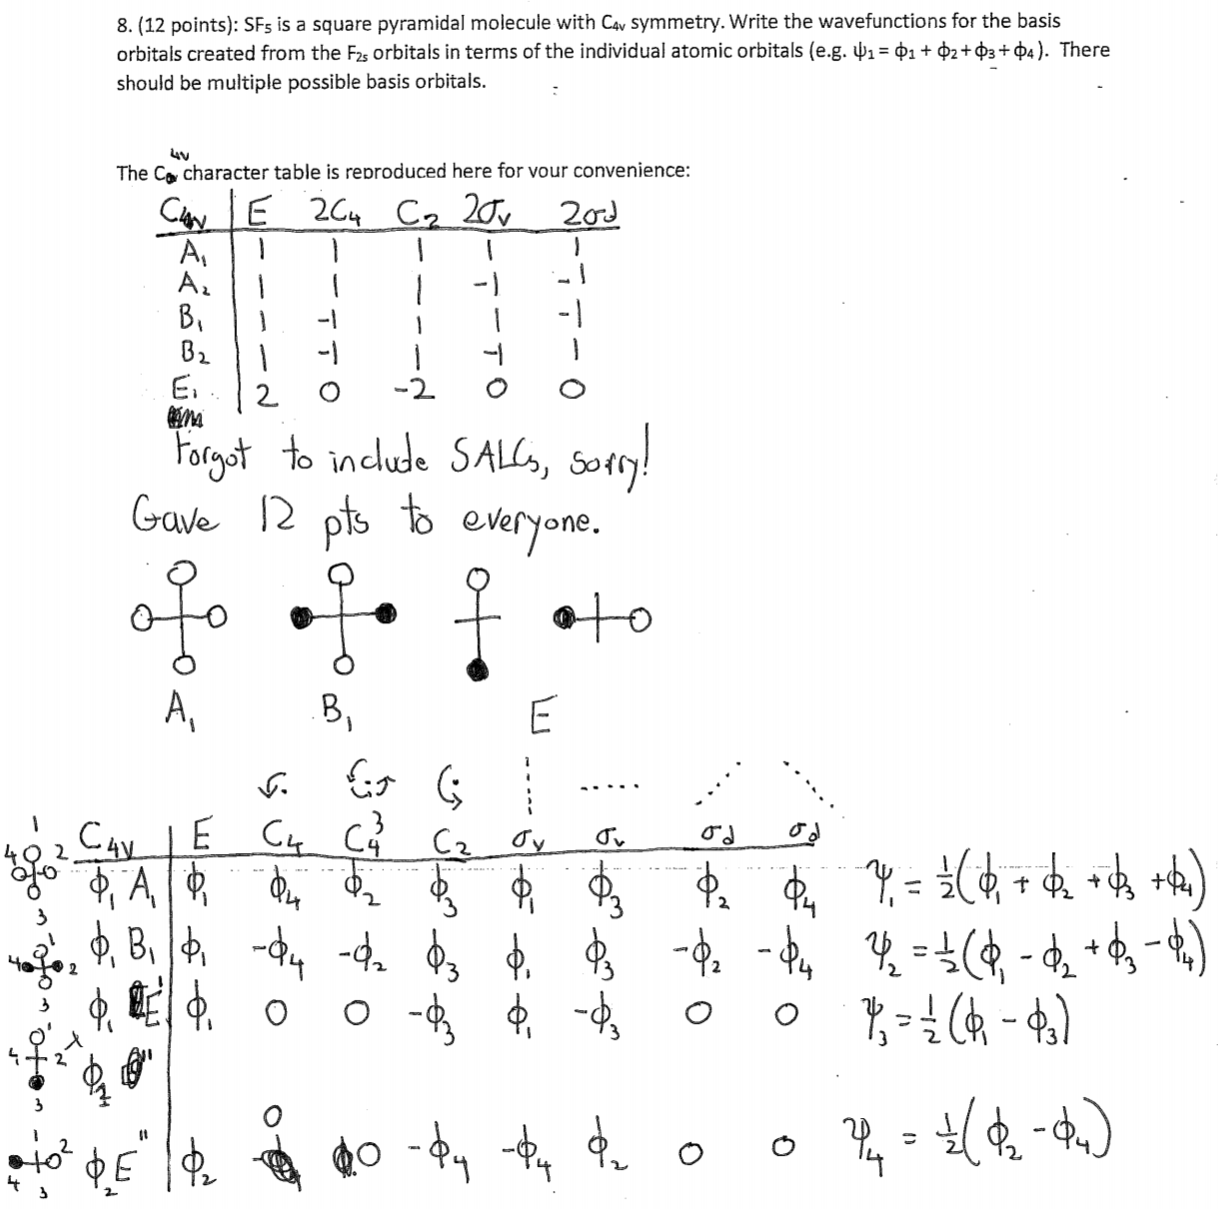 8. (12 points): SF₅ is a square pyramidal molecule with C₄ᵥ symmetry. Write the wavefunctions for the basis
orbitals created from the F₂ₛ orbitals in terms of the individual atomic orbitals (e.g. ψ₁ = ϕ₁ + ϕ₂ + ϕ₃ + ϕ₄ ). There
should be multiple possible basis orbitals.
4v
The C character table is reproduced here for your convenience:
C₄ᵥ E 2C₄ C₂ 2σᵥ 2σd
A₁ 1 1 1 1 1
A₂ 1 1 1 -1 -1
B₁ 1 -1 1 1 -1
B₂ 1 -1 1 -1 1
E₁ 2 0 -2 0 0
Forgot to include SALCs, sorry!
Gave 12 pts to everyone.
A₁ B₁ E
C₄ᵥ E C₄ C₄³ C₂ σᵥ σᵥ σd σd
1 4 2 3
ϕ₁ A₁ ϕ₁ ϕ₄ ϕ₂ ϕ₃ ϕ₁ ϕ₃ ϕ₂ ϕ₄ Ψ₁ = ½(ϕ₁ + ϕ₂ + ϕ₃ + ϕ₄)
1 4 2 3
ϕ₁ B₁ ϕ₁ -ϕ₄ -ϕ₂ ϕ₃ ϕ₁ ϕ₃ -ϕ₂ -ϕ₄ Ψ₂ = ½(ϕ₁ - ϕ₂ + ϕ₃ - ϕ₄)
ϕ₁ E' ϕ₁ 0 0 -ϕ₃ ϕ₁ -ϕ₃ 0 0 Ψ₃ = ½(ϕ₁ - ϕ₃)
1 4 2 3
ϕ₂ "
1 4 2 3
ϕ₂ E" ϕ₂ 0 0 -ϕ₄ -ϕ₄ ϕ₂ 0 0 Ψ₄ = ½(ϕ₂ - ϕ₄)